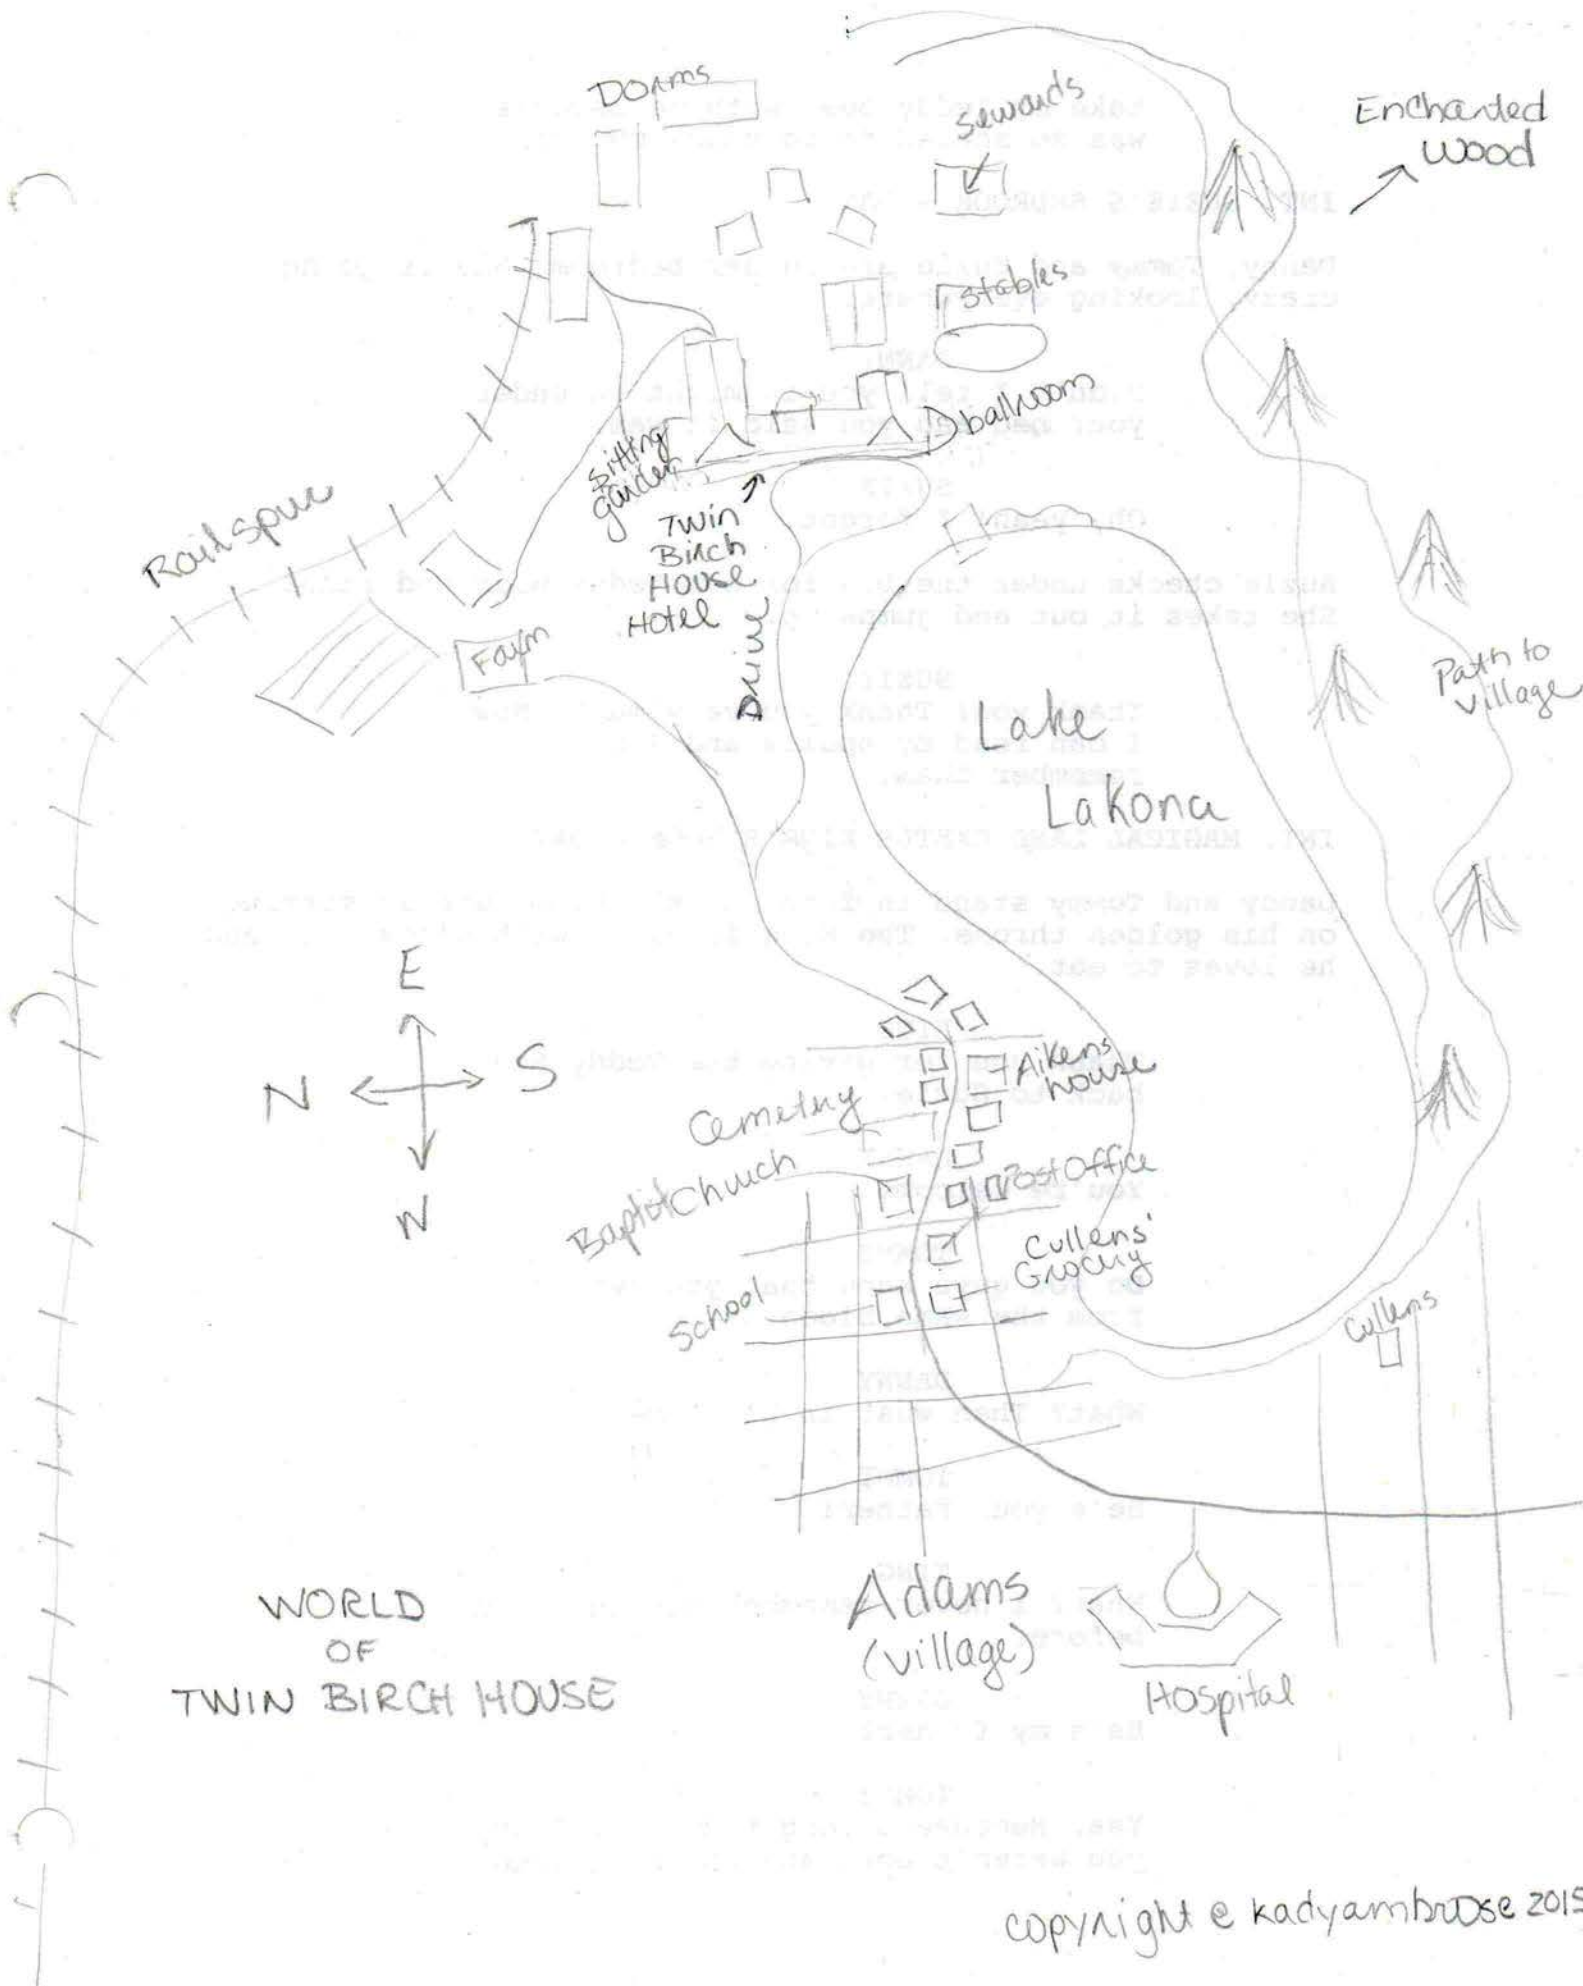 Dorms
Sewards
Enchanted
Wood
Stables
ballroom
Sitting
garden
Twin
Birch
House
Hotel
Drive
Railspur
Farm
Lake
Lakona
Path to
village
E
N
S
W
Aikens
house
Cemetery
Baptist Church
Post Office
Cullens'
Grocery
School
Cullens
Adams
(village)
Hospital
WORLD
OF
TWIN BIRCH HOUSE
copyright © kadyambrose 2015